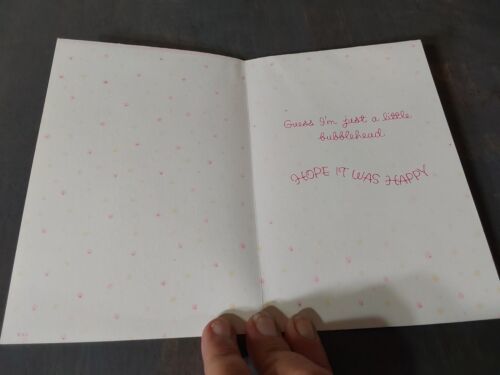 Guess I'm just a little
bubblehead
HOPE IT WAS HAPPY